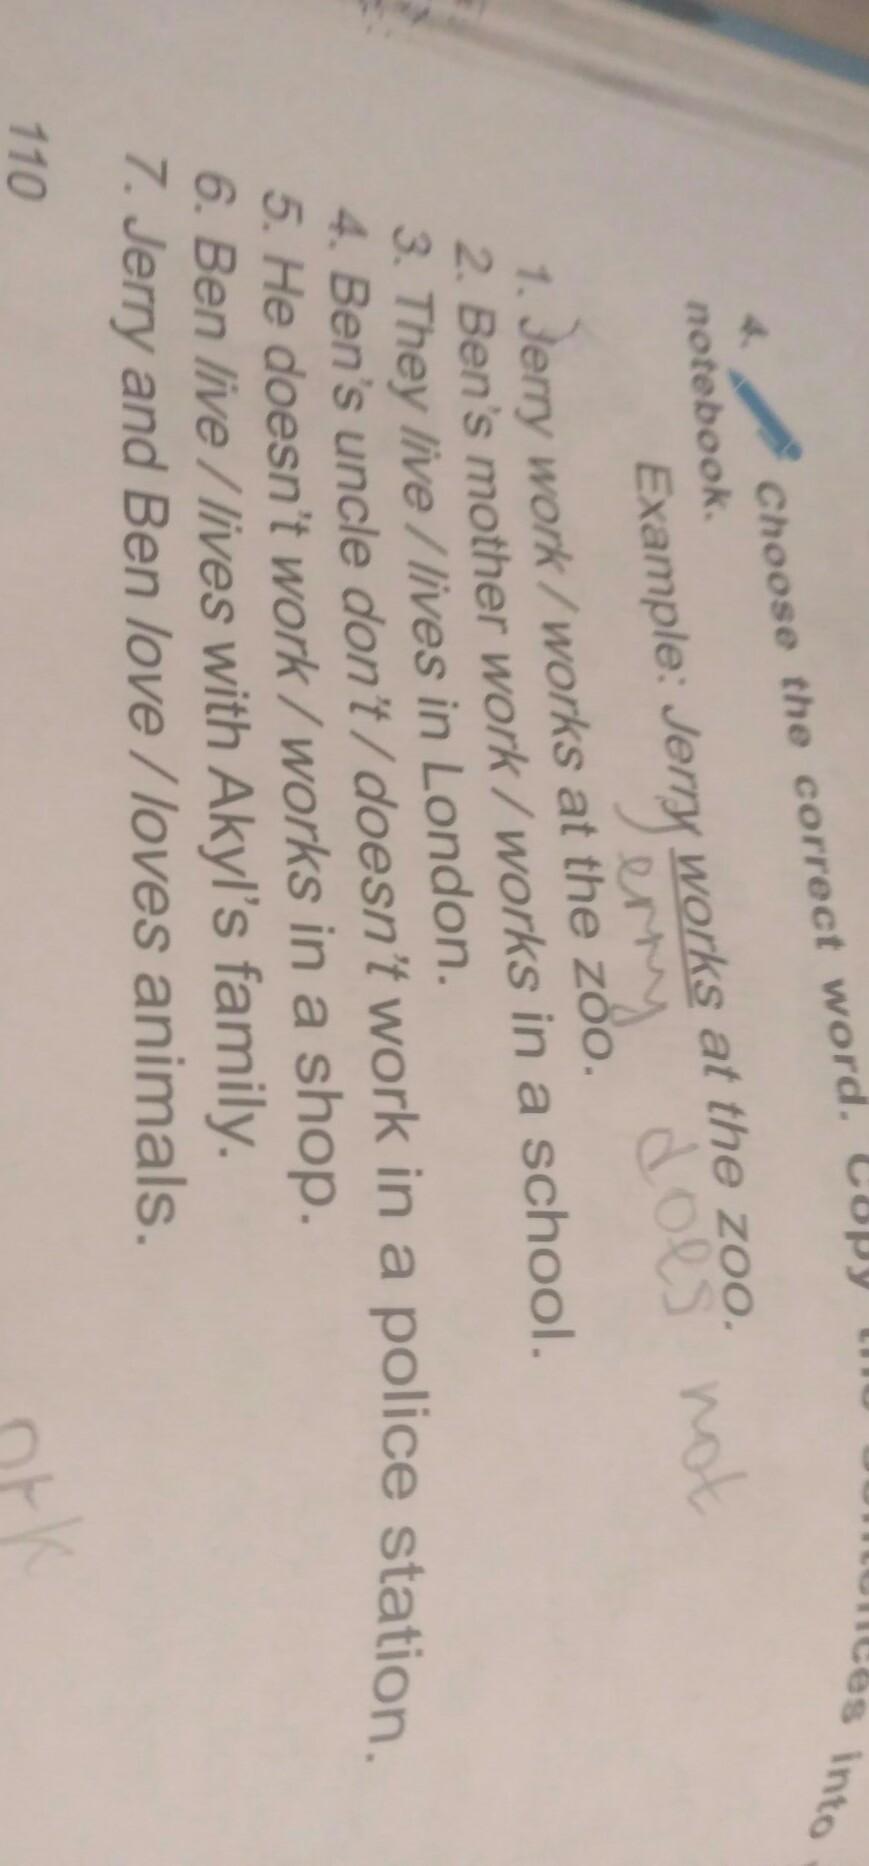 4. Choose the correct word. Copy the sentences into
notebook.
Example: Jerry works at the zoo.
Jerry does not
1. Jerry work / works at the zoo.
2. Ben's mother work / works in a school.
3. They live / lives in London.
4. Ben's uncle don't / doesn't work in a police station.
5. He doesn't work / works in a shop.
6. Ben live / lives with Akyl's family.
7. Jerry and Ben love / loves animals.
110